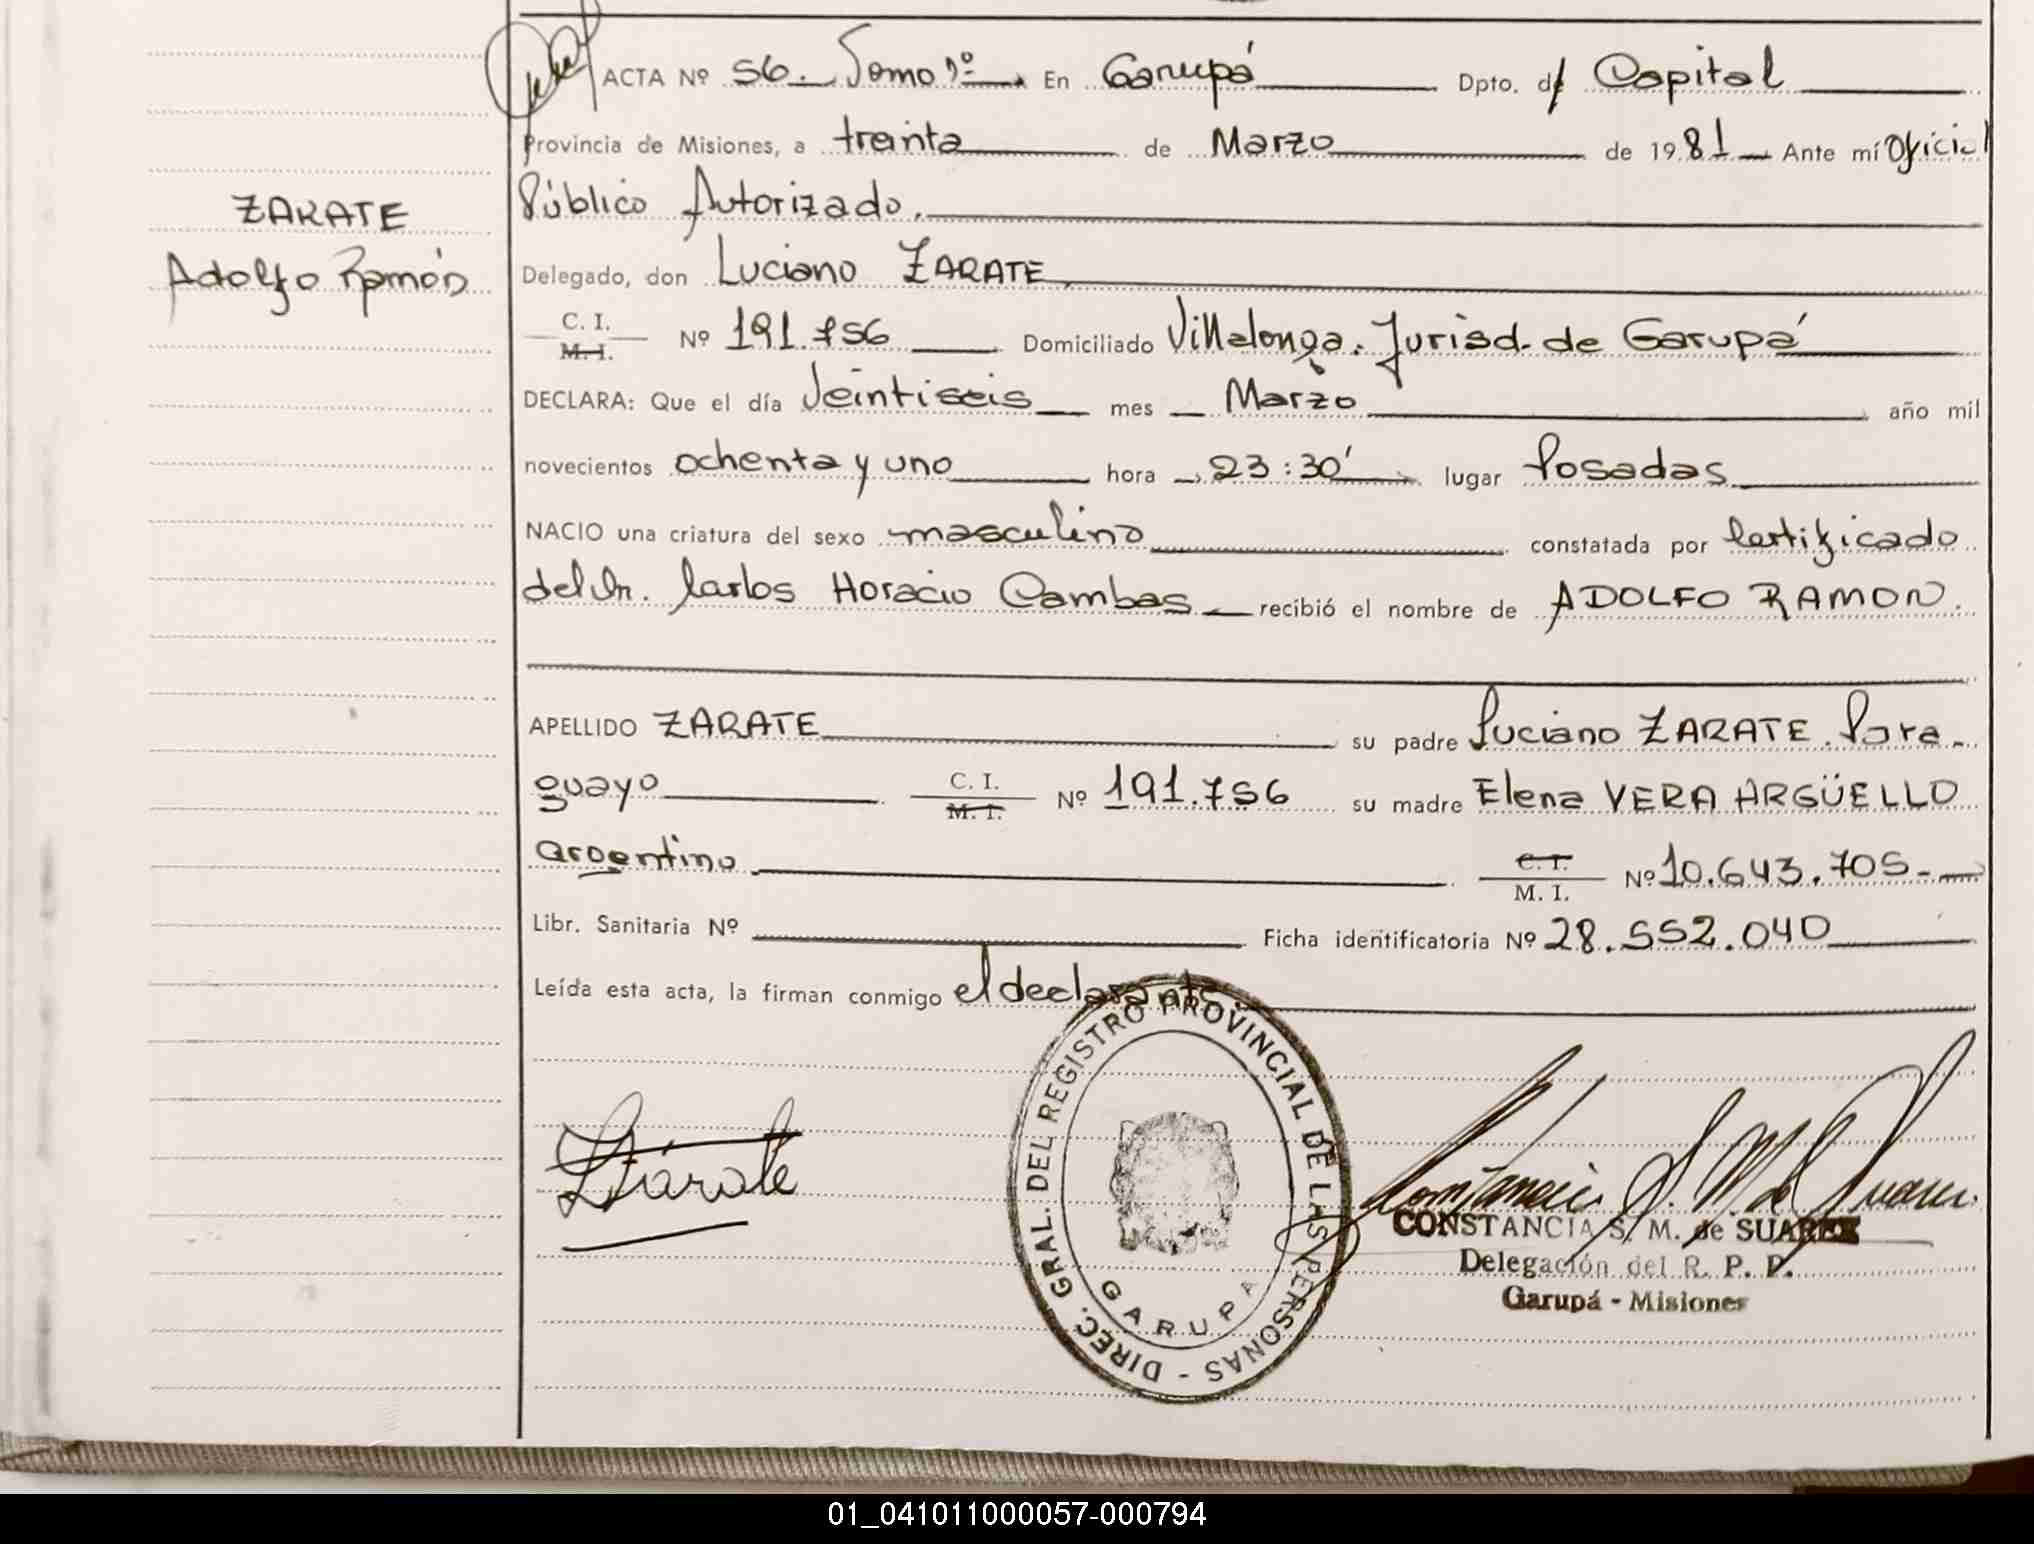 ACTA Nº 56. Tomo 1º En Garupá Dpto. d Capital
Provincia de Misiones, a treinta de Marzo de 1981 Ante mí Oficial
Público Autorizado.
ZARATE
Adolfo Ramón
Delegado, don Luciano ZARATE
C. I.
M. I. Nº 191.756 Domiciliado Villalonga. Jurisd. de Garupá
DECLARA: Que el día Veintiseis mes Marzo año mil
novecientos ochenta y uno hora 23:30' lugar Posadas
NACIO una criatura del sexo masculino constatada por Certificado
del Dr. Carlos Horacio Cambas recibió el nombre de ADOLFO RAMON.
APELLIDO ZARATE su padre Luciano ZARATE. Para-
guayo C. I.
M. I. Nº 191.756 su madre Elena VERA ARGÜELLO
argentina C. I.
M. I. Nº 10.643.705-
Libr. Sanitaria Nº Ficha identificatoria Nº 28.552.040
Leída esta acta, la firman conmigo el declarante
LZárate
DIREC. GRAL. DEL REGISTRO PROVINCIAL DE LAS PERSONAS -
GARUPA
Constancia S. M. de Suarez
CONSTANCIA S. M. de SUAREZ
Delegación del R. P. P.
Garupá - Misiones
01_041011000057-000794